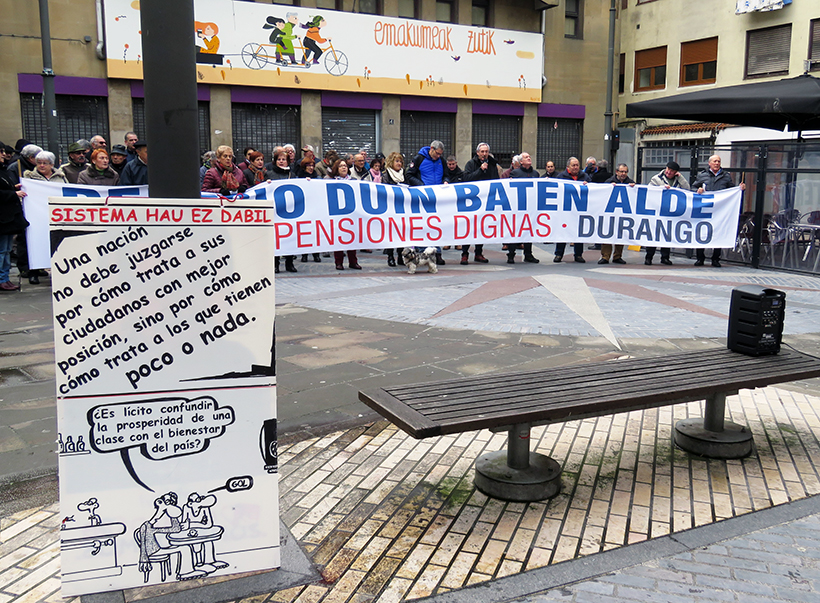 emakumeak zutik
IO DUIN BATEN ALDE
PENSIONES DIGNAS · DURANGO
SISTEMA HAU EZ DABIL
Una nación
no debe juzgarse
por cómo trata a sus
ciudadanos con mejor
posición, sino por cómo
cómo trata a los que tienen
poco o nada.
¿Es lícito confundir
la prosperidad de una
clase con el bienestar
del país?
GOL